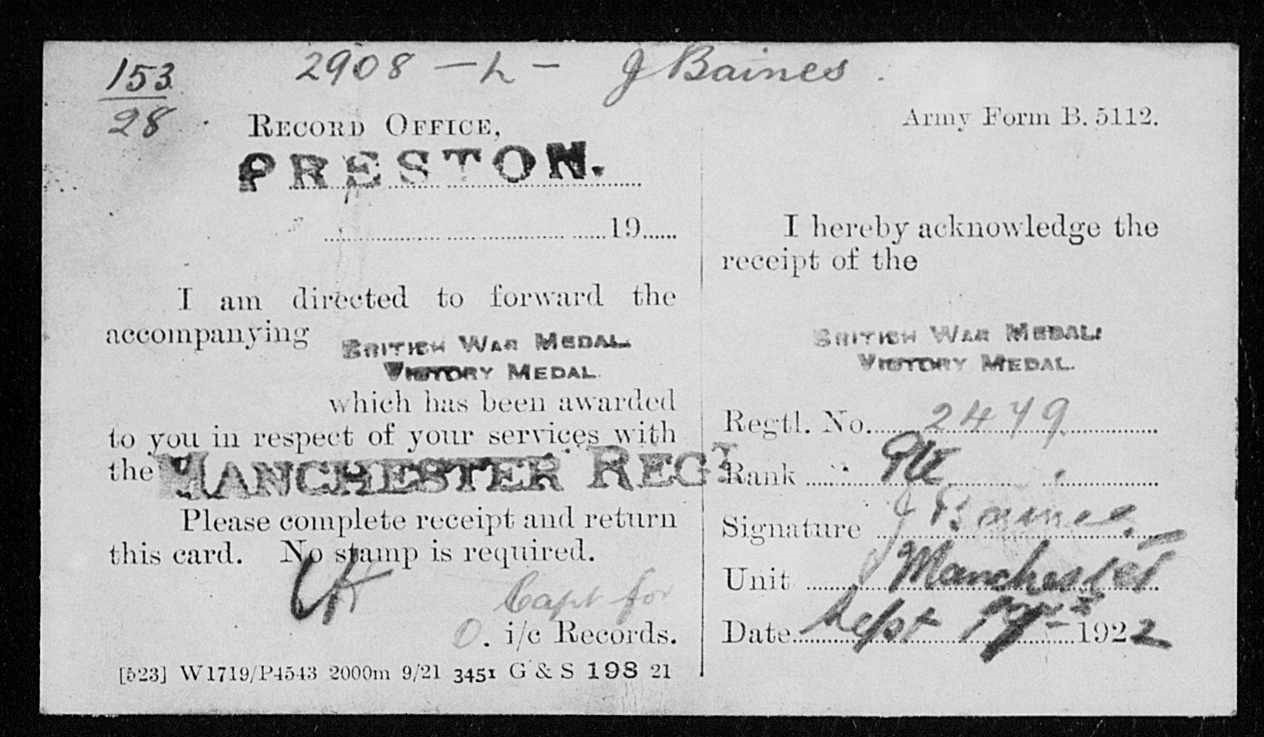 153
28
2908 - L - J Baines.
RECORD OFFICE,
PRESTON.
19
I am directed to forward the
accompanying
BRITISH WAR MEDAL.
VICTORY MEDAL.
which has been awarded
to you in respect of your services with
the MANCHESTER REGT
Please complete receipt and return
this card. No stamp is required.
Capt for
O. i/c Records.
[523] W1719/P4543 2000m 9/21 3451 G & S 198 21
Army Form B. 5112.
I hereby acknowledge the
receipt of the
BRITISH WAR MEDAL.
VICTORY MEDAL.
Regtl. No. 2479
Rank Pte
Signature J Baines.
Unit Manchester
Date Sept 1922